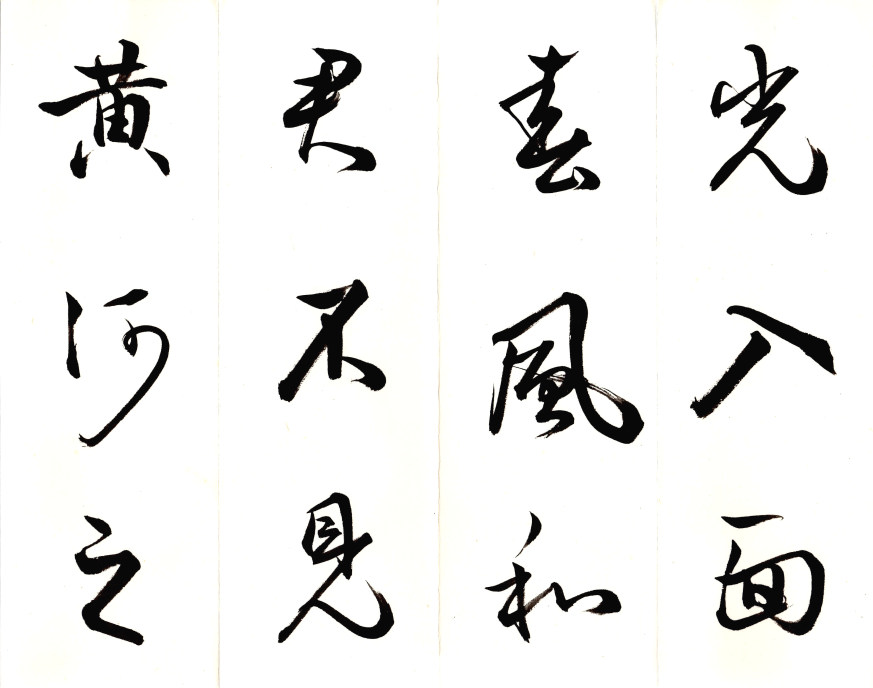 光入面
春風和
君不見
黄河之